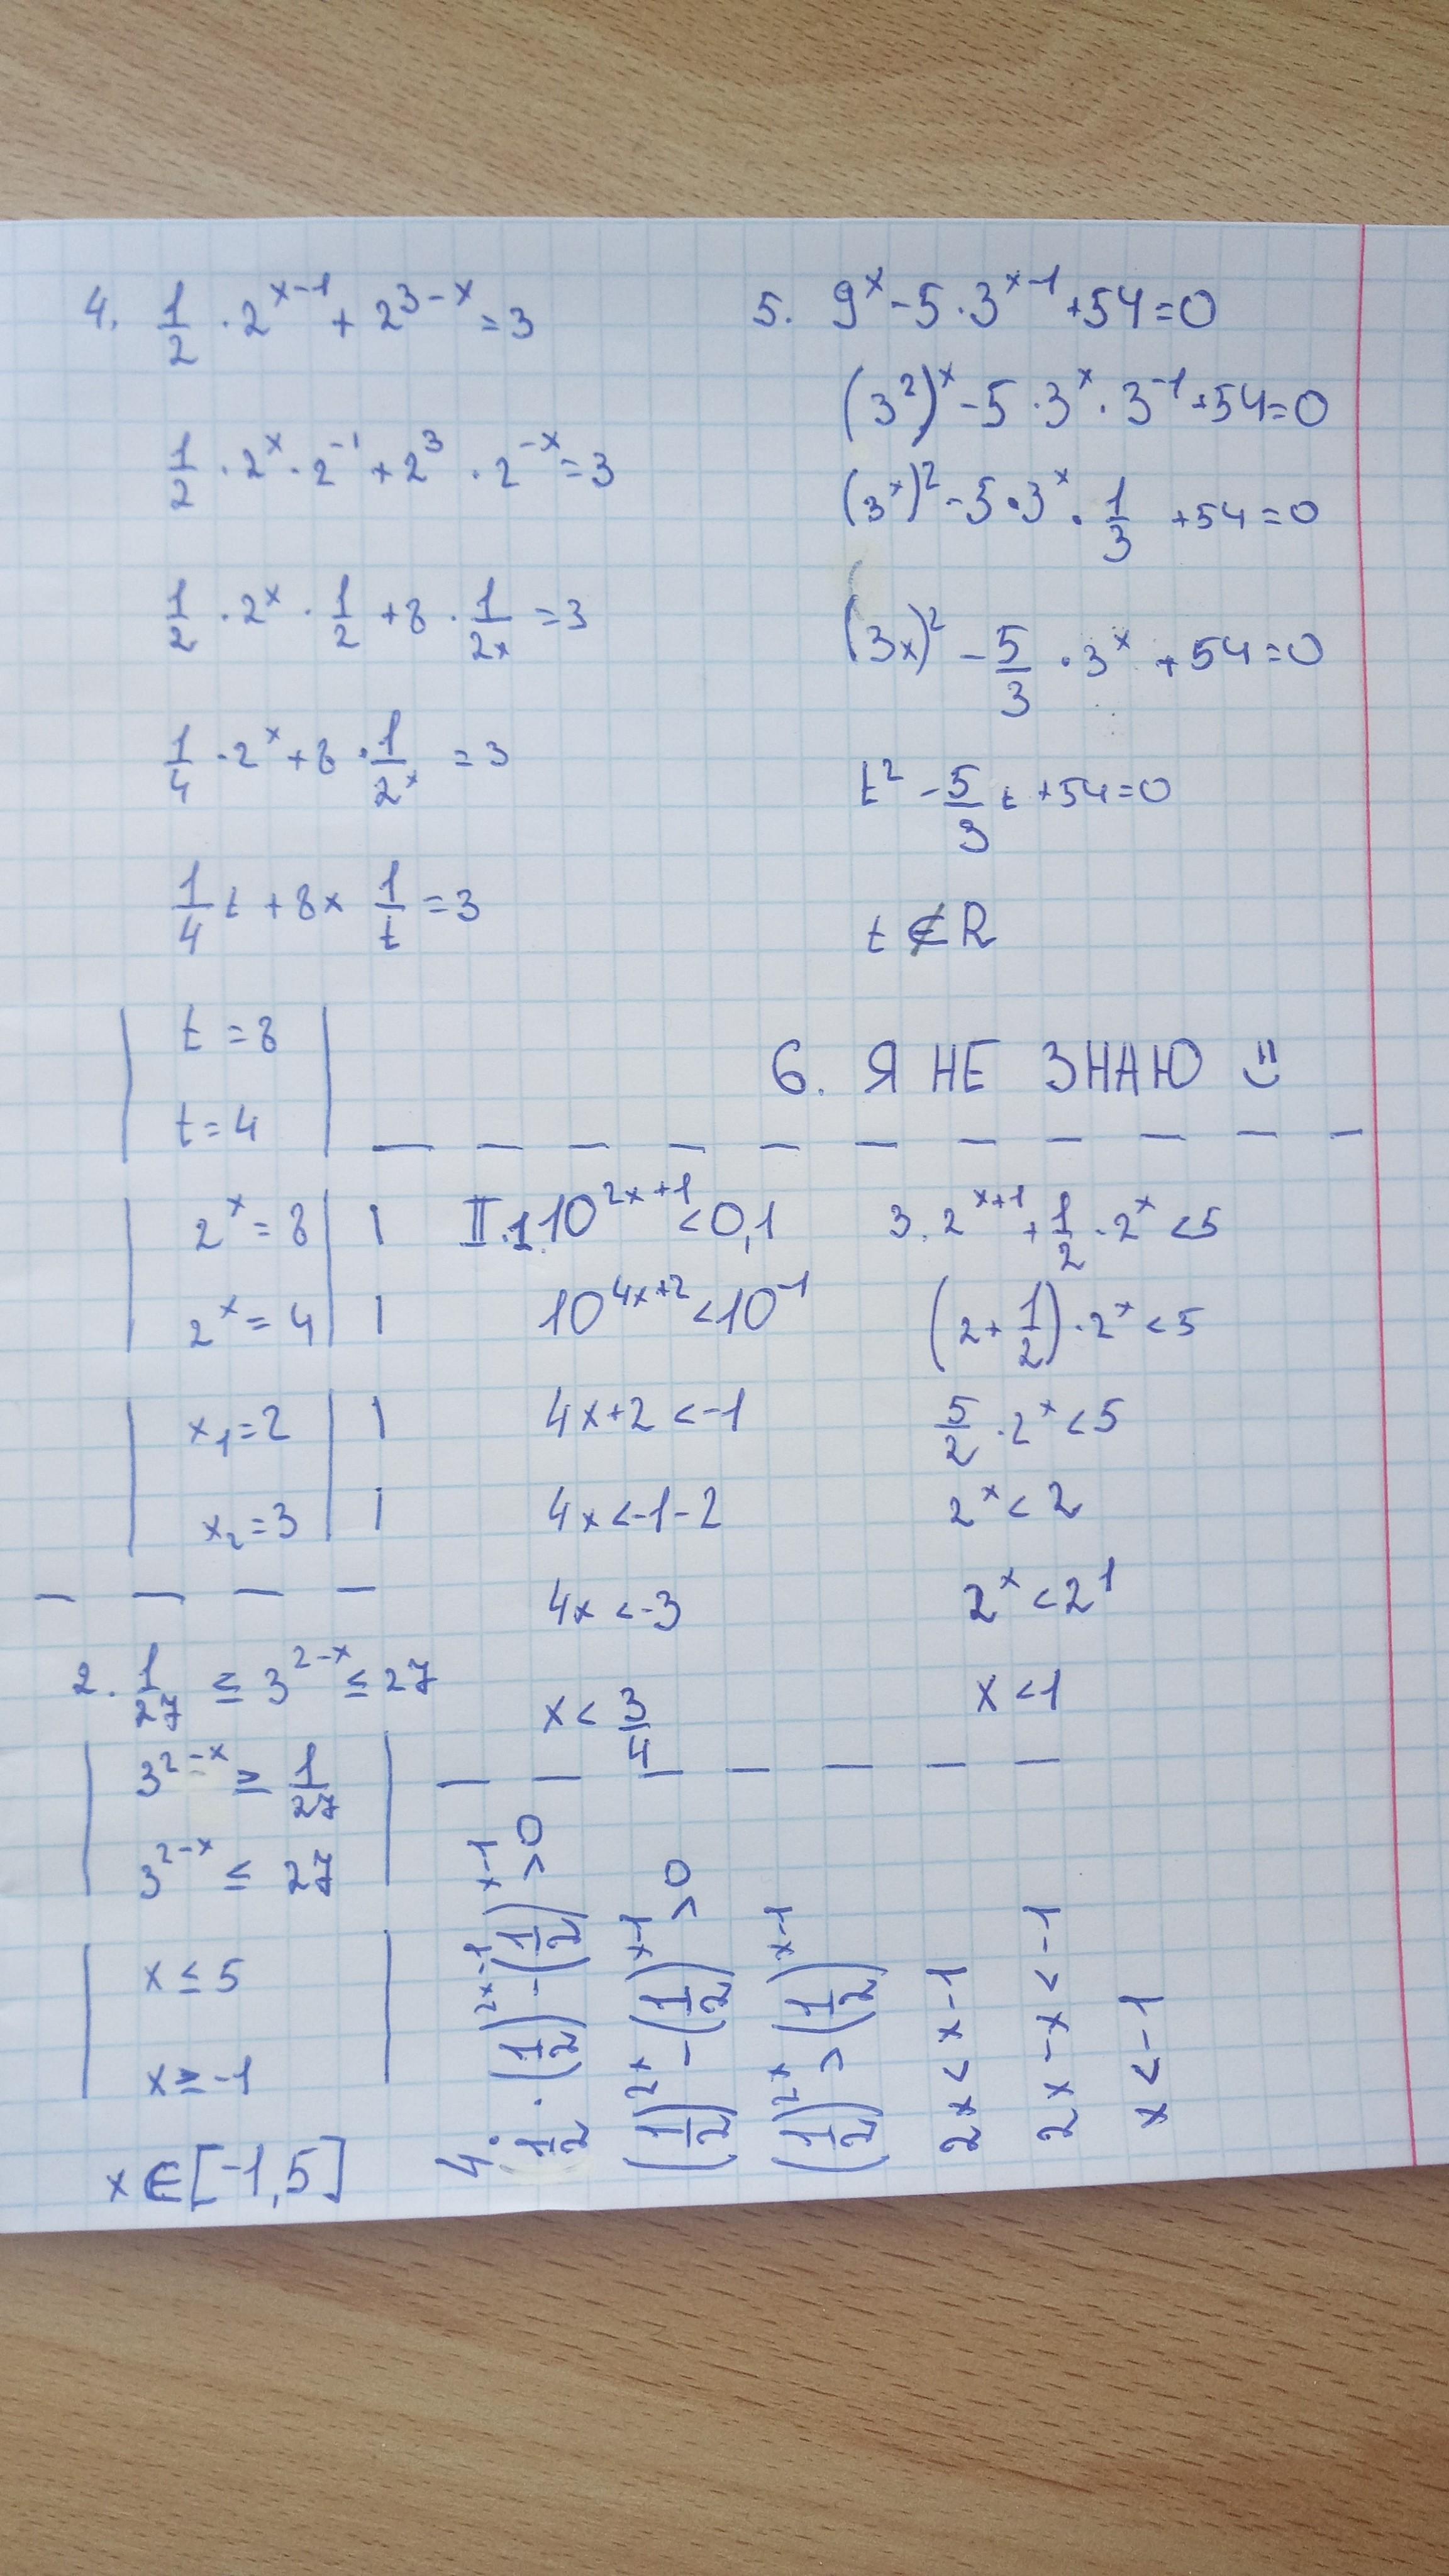 4. 1/2 · 2^(x-1) + 2^(3-x) = 3
1/2 · 2^x · 2^(-1) + 2^3 · 2^(-x) = 3
1/2 · 2^x · 1/2 + 8 · 1/2x = 3
1/4 · 2^x + 8 · 1/2^x = 3
1/4 t + 8x 1/t = 3
t = 8
t = 4
2^x = 8
2^x = 4
x₁ = 2
x₂ = 3
5. 9^x - 5 · 3^(x-1) + 54 = 0
(3^2)^x - 5 · 3^x · 3^(-1) + 54 = 0
(3^x)^2 - 5 · 3^x · 1/3 + 54 = 0
(3x)^2 - 5/3 · 3^x + 54 = 0
t^2 - 5/3 t + 54 = 0
t ∉ R
6. Я НЕ ЗНАЮ
II.1. 10^(2x+1) < 0,1
10^(4x+2) < 10^(-1)
4x+2 < -1
4x < -1-2
4x < -3
x < 3/4
3. 2^(x+1) + 1/2 · 2^x < 5
(2 + 1/2) · 2^x < 5
5/2 · 2^x < 5
2^x < 2
2^x < 2^1
x < 1
2. 1/27 ≤ 3^(2-x) ≤ 27
3^(2-x) ≥ 1/27
3^(2-x) ≤ 27
x ≤ 5
x ≥ -1
x ∈ [-1,5]
4. 1/2 · (1/2)^(2x-1) - (1/2)^(x-1) > 0
(1/2)^(2x) - (1/2)^(x-1) > 0
(1/2)^(2x) > (1/2)^(x-1)
2x < x-1
2x - x < -1
x < -1